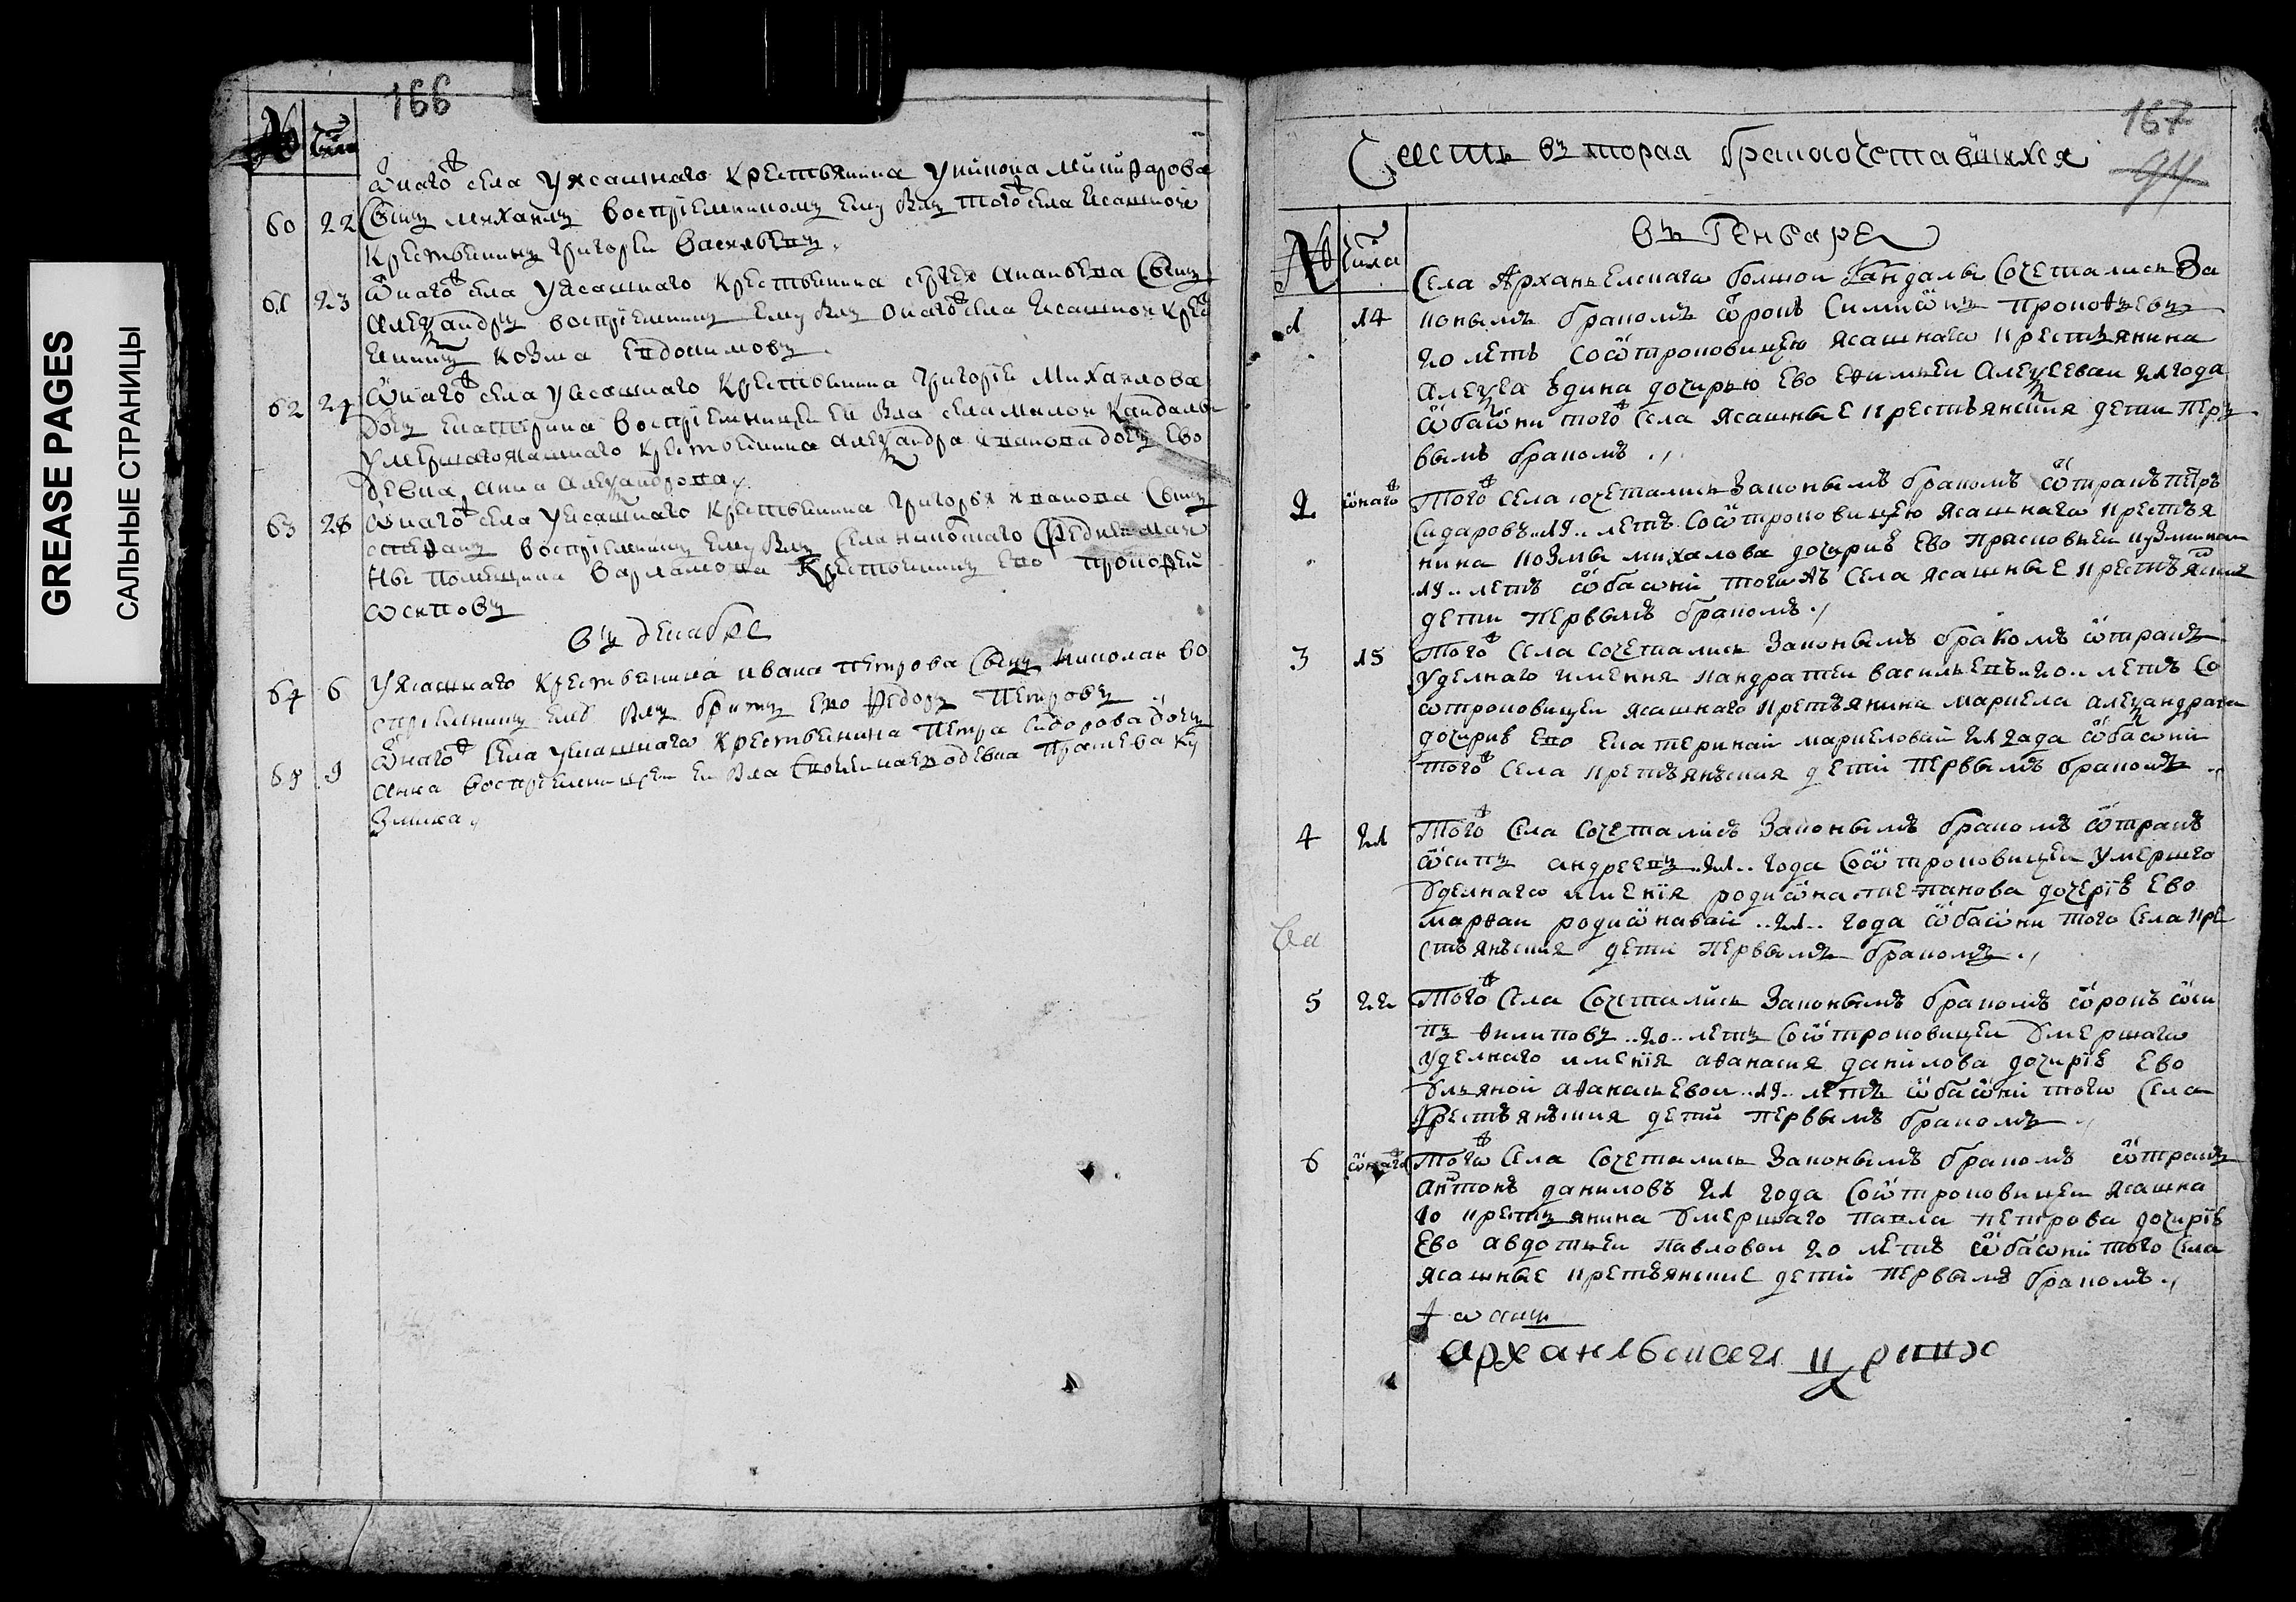 GREASE PAGES
САЛЬНЫЕ СТРАНИЦЫ
166
№ числа
онагож села у ясашнаго крестьянина
60 22 сынъ михаилъ воспрiемникомъ ему былъ тогож села ясашной
крестьянинъ григореи васильевъ
61 23 онагож села у ясашнаго крестьянина сергея ананьева сынъ
александръ воспрiемникъ ему былъ онагож села ясашнои крес
янинъ козма евдокимовъ
62 24 онагож села у ясашнаго крестьянина григорiя михаилова
дочь екатерина воспрiемницеи еи была села малои кандалы
умершаго ясашнаго крестьянина александра иванова дочь ево
девка анна александрова
63 28 онагож села у ясашнаго крестьянина григорья иванова сынъ
стефанъ воспрiемникъ ему былъ села
помещика варламова крестьянинъ ево прокофей
осиповъ
въ декабре
64 6 у ясашнаго крестьянина ивана петрова сынъ николаи во
спрiемникъ ему былъ братъ ево федоръ петровъ
65 9 онагож села у ясашнаго крестьянина петра сидорова дочь
анна воспрiемницеи еи была девка прасковья ку
змина
167
94
Часть вторая бракосочетавшихся
въ Генваре
№ числа
Села Архангельскаго большои Кандалы сочетались за
1 14 конымъ бракомъ отрокъ симионъ прокофьевъ
20 летъ соотроковицею ясашнаго крестьянина
алексея дочерью ево алексевои 21 года
оба они тогож села ясашные крестьянския дети пер
вымъ бракомъ
2 онагож тогож села сочетались законымъ бракомъ отракъ петръ
сидаровъ 19 летъ соотроковицею ясашнаго крестья
нина козмы михалова дочерие ево прасковьеи кузминаи
19 летъ оба они тогожъ села ясашные крестьянския
дети первымъ бракомъ
3 15 тогож села сочетались законымъ бракомъ отракъ
уделнаго имения кандратеи васильевъ 20 летъ со
отроковицеи ясашнаго крестьянина маркела александрова
дочерие ево екатеринаи маркеловаи 21 года оба они
тогож села крестьянския дети первымъ бракомъ
4 21 тогож села сочетались законымъ бракомъ отракъ
осипъ андреевъ 21 года соотроковицеи умершго
уделнаго имения родиона степанова дочерiе ево
марфаи родионаваи 21 года оба они того села кре
стьянския дети первымъ бракомъ
5 22 тогож села сочетались законымъ бракомъ отрокъ оси
пъ филиповъ 20 летъ соотроковицеи умершаго
уделнаго имениiя афанасия данилова дочерiе ево
ульяной афанасьевои 19 летъ оба они того села
крестьянския дети первымъ бракомъ
6 онагож тогож села сочетались законымъ бракомъ отракъ
антонъ даниловъ 21 года соотроковицеи ясашна
го крестьянина умершаго павла петрова дочерiе
ево авдотьеи павловои 20 летъ оба они того села
ясашные крестьянские дети первымъ бракомъ